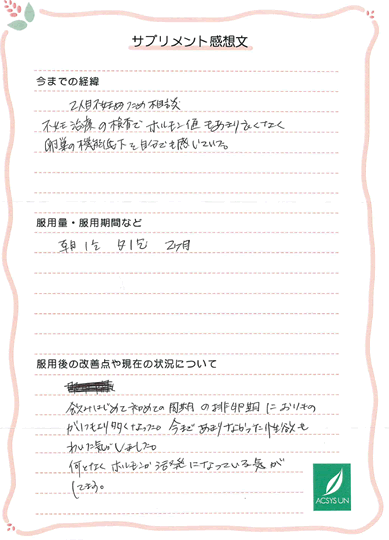 サプリメント感想文
今までの経緯
2人目不妊のため相談
不妊治療の検査でホルモン値もあまり良くなく
卵巣の機能低下を自分でも感じていた。
服用量・服用期間など
朝1包 夕1包 2ヶ月
服用後の改善点や現在の状況について
飲みはじめて初めての周期の排卵期におりもの
がいつもより多くなった。今まであまりなかった性欲も
わいた気がしました。
何となくホルモンが活発になっている気が
してます。
ACSYS UN